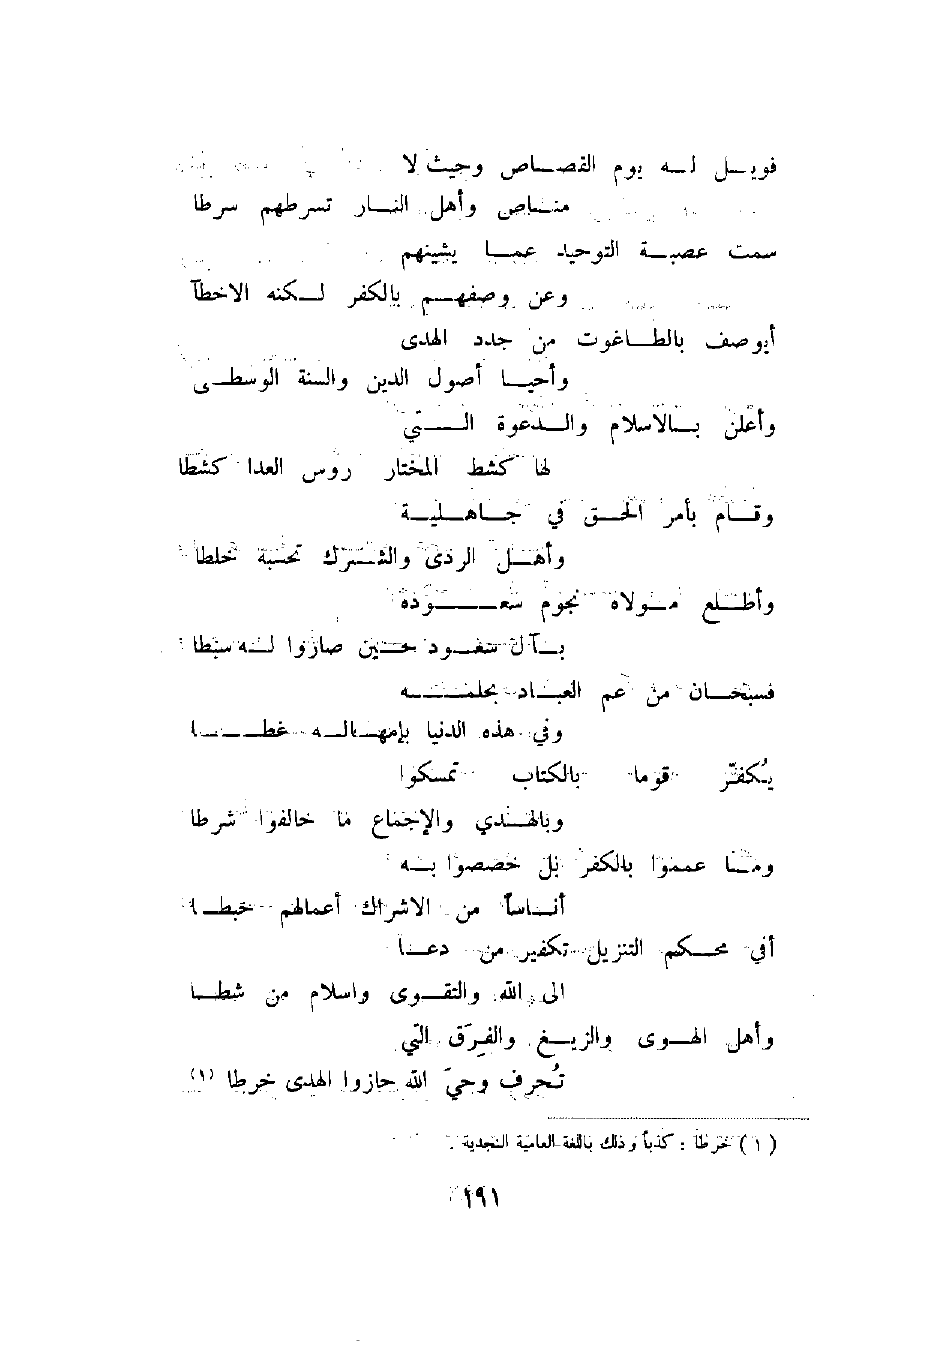 فويـل لـه يوم القصـاص وحيث لا
منـاص وأهل النـار تسرطهم سرطا
سمت عصبـة التوحيد عمـا يشينهم
وعن وصفهـم بالكفر لـكنه الاخطآ
أيوصف بالطـاغوت من جدد الهدى
وأحيـا أصول الدين والسنة الوسطى
وأعلن بـالاسلام والـدعوة الـتي
لها كشط المختار روس العدا كشطا
وقـام بأمر الحـق في جـاهـليـة
وأهـل الردى والشـرك تحسبة خلطا
وأطـلع مـولاه نجوم سعـوده
بـآل سعـود حـين صاروا لـه سبطا
فسبحـان من عم العبـاد بحلمـه
وفي هذه الدنيا بإمهـالـه غطـا
يُـكفـّر قوما بالكتاب تمسكوا
وبالهـدي والإجماع ما خالفوا شرطا
ومـا عمموا بالكفر بل خصصوا بـه
أنـاساً من الاشراك أعمالهم خبطـا
أفي محـكم التنزيل تكفير من دعـا
الى الله والتقـوى واسلام من شطـا
وأهل الهـوى والزيـغ والفِرَق التي
تُحرف وحيَ الله حازوا الهدى خرطا (١)
(١) خرطا : كذباً وذلك باللغة العامية النجدية .
١٩١